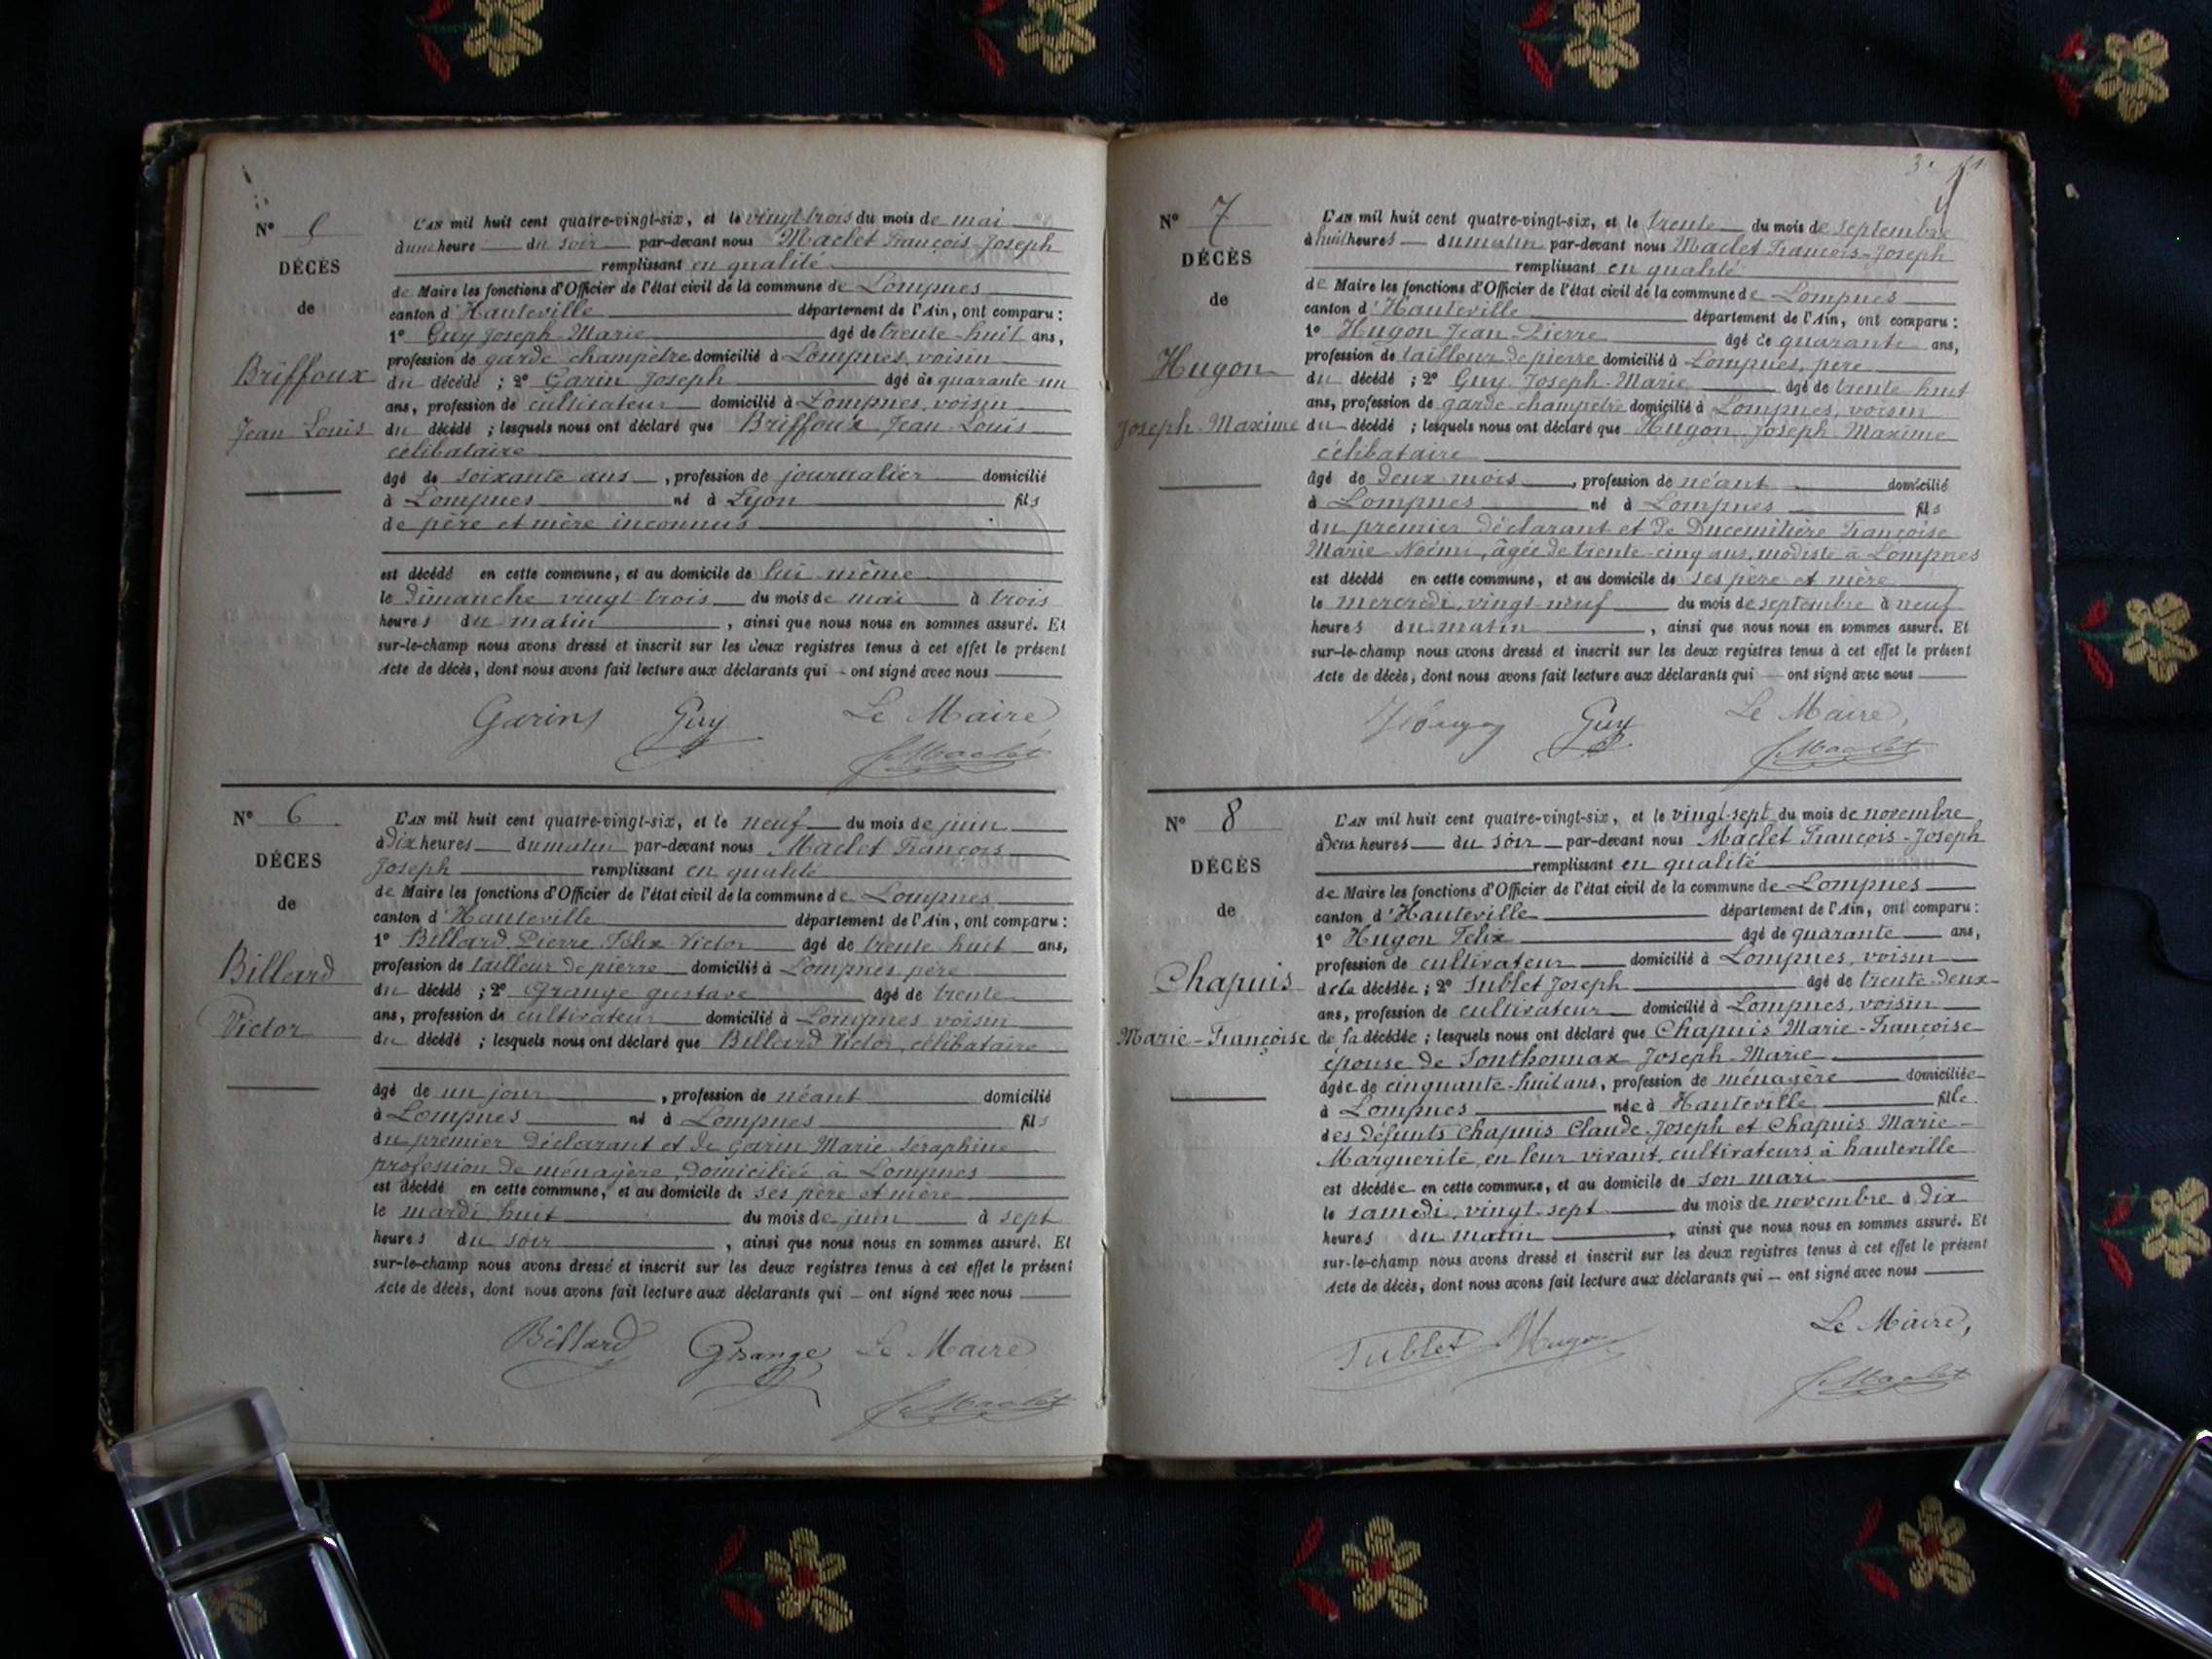 N° 5
DÉCÈS
de
Briffoux
Jean Louis
L'AN mil huit cent quatre-vingt-six, et le vingt trois du mois de mai
à une heure du soir par-devant nous Maclet François Joseph
remplissant en qualité
de Maire les fonctions d'Officier de l'état civil de la commune de Lompnes
canton d'Hauteville département de l'Ain, ont comparu :
1° Guy Joseph Marie âgé de trente-huit ans,
profession de garde champêtre domicilié à Lompnes, voisin
du décédé ; 2° Garin Joseph âgé de quarante un
ans, profession de cultivateur domicilié à Lompnes, voisin
du décédé ; lesquels nous ont déclaré que Briffoux Jean Louis
célibataire
âgé de soixante ans, profession de journalier domicilié
à Lompnes né à Lyon fils
de père et mère inconnus
est décédé en cette commune, et au domicile de lui même
le Dimanche vingt trois du mois de mai à trois
heures du matin, ainsi que nous nous en sommes assuré. Et
sur-le-champ nous avons dressé et inscrit sur les deux registres tenus à cet effet le présent
Acte de décès, dont nous avons fait lecture aux déclarants qui ont signé avec nous
Garin Guy Le Maire
f Maclet
N° 6
DÉCES
de
Billard
Victor
L'AN mil huit cent quatre-vingt-six, et le neuf du mois de juin
à Dix heures du matin par-devant nous Maclet François
Joseph remplissant en qualité
de Maire les fonctions d'Officier de l'état civil de la commune de Lompnes
canton d'Hauteville département de l'Ain, ont comparu :
1° Billard Pierre Félix Victor âgé de trente huit ans,
profession de tailleur de pierre domicilié à Lompnes père
du décédé ; 2° Grange gustave âgé de trente
ans, profession de cultivateur domicilié à Lompnes voisin
du décédé ; lesquels nous ont déclaré que Billard Victor, célibataire
âgé de un jour, profession de néant domicilié
à Lompnes né à Lompnes fils
du premier déclarant et de Garin Marie Séraphine
profession de ménagère, domiciliée à Lompnes
est décédé en cette commune, et au domicile de ses père et mère
le mardi huit du mois de juin à sept
heures du soir, ainsi que nous nous en sommes assuré. Et
sur-le-champ nous avons dressé et inscrit sur les deux registres tenus à cet effet le présent
Acte de décès, dont nous avons fait lecture aux déclarants qui – ont signé avec nous
Billard Grange Le Maire
f Maclet
N° 7
DÉCÈS
de
Hugon
Joseph-Maxime
L'AN mil huit cent quatre-vingt-six, et le trente du mois de septembre
à huit heures du matin par-devant nous Maclet François-Joseph
remplissant en qualité
de Maire les fonctions d'Officier de l'état civil de la commune de Lompnes
canton d'Hauteville département de l'Ain, ont comparu :
1° Hugon Jean Pierre âgé de quarante ans,
profession de tailleur de pierre domicilié à Lompnes, père
du décédé ; 2° Guy Joseph-Marie âgé de trente huit
ans, profession de garde champêtre domicilié à Lompnes, voisin
du décédé ; lesquels nous ont déclaré que Hugon Joseph Maxime
célibataire
âgé de Deux mois, profession de néant domicilié
à Lompnes né à Lompnes fils
du premier déclarant et de Ducemitière Françoise
Marie Noémi, âgée de trente-cinq ans, modiste à Lompnes
est décédé en cette commune, et au domicile de ses père et mère
le mercredi, vingt neuf du mois de septembre à neuf
heures du matin, ainsi que nous nous en sommes assuré. Et
sur-le-champ nous avons dressé et inscrit sur les deux registres tenus à cet effet le présent
Acte de décès, dont nous avons fait lecture aux déclarants qui ont signé avec nous
Guy Le Maire,
f Maclet
N° 8
DÉCÈS
de
Chapuis
Marie-Françoise
L'AN mil huit cent quatre-vingt-six, et le vingt-sept du mois de novembre
à Deux heures du soir par-devant nous Maclet François-Joseph
remplissant en qualité
de Maire les fonctions d'Officier de l'état civil de la commune de Lompnes
canton d'Hauteville département de l'Ain, ont comparu :
1° Hugon Felix âgé de quarante ans,
profession de cultivateur domicilié à Lompnes, voisin
de la décédée ; 2° Tublet Joseph âgé de trente Deux
ans, profession de cultivateur domicilié à Lompnes, voisin
de la décédée ; lesquels nous ont déclaré que Chapuis Marie-Françoise
épouse de Sonthonnax Joseph-Marie
âgée de cinquante-huit ans, profession de ménagère domiciliée
à Lompnes née à Hauteville fille
des Défunts Chapuis Claude-Joseph et Chapuis Marie-
Marguerite, en leur vivant, cultivateurs à hauteville
est décédée en cette commune, et au domicile de son mari
le samedi, vingt-sept du mois de novembre à dix
heures du matin, ainsi que nous nous en sommes assuré. Et
sur-le-champ nous avons dressé et inscrit sur les deux registres tenus à cet effet le présent
Acte de décès, dont nous avons fait lecture aux déclarants qui – ont signé avec nous
Le Maire,
Tublet Hugon
f Maclet